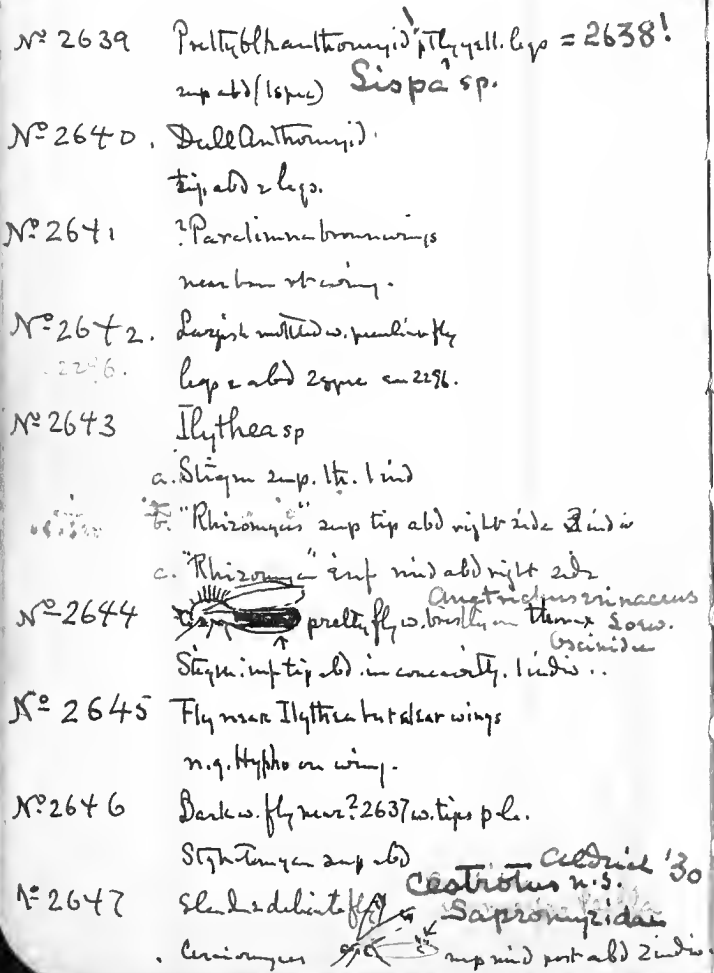 Nº 2639 Pretty blk anthomyid ptly yell. legs = 2638!
sup abd (1 spec) Lispa? sp.
Nº 2640. Dull Anthomyid.
tip abd & legs.
Nº 2641 ?Paralimna brown wings
near base rt wing.
Nº 2642. Largish mottled w. peculiar fly
2296. legs & abd 2 spec 2296.
Nº 2643 Ilythea sp
a. Stigm sup. th. 1 ind
b. "Rhizomyces" sup tip abd right side indiv
c. "Rhizomyces" inf mid abd right side
Nº 2644 pretty fly w. bristly thorax Loew.
Stigm. inf tip abd. in concavity. 1 indiv..
Nº 2645 Fly near Ilythea but clear wings
n.g. Hypho on wing.
Nº 2646 Dark w. fly near ?2637 w. tips
sup abd Aldrich '30
Cestrotus n.s.
Nº 2647 Slender delicate fly Sapromyzidae
Ceraiomyces sup mid post abd 2 indiv.